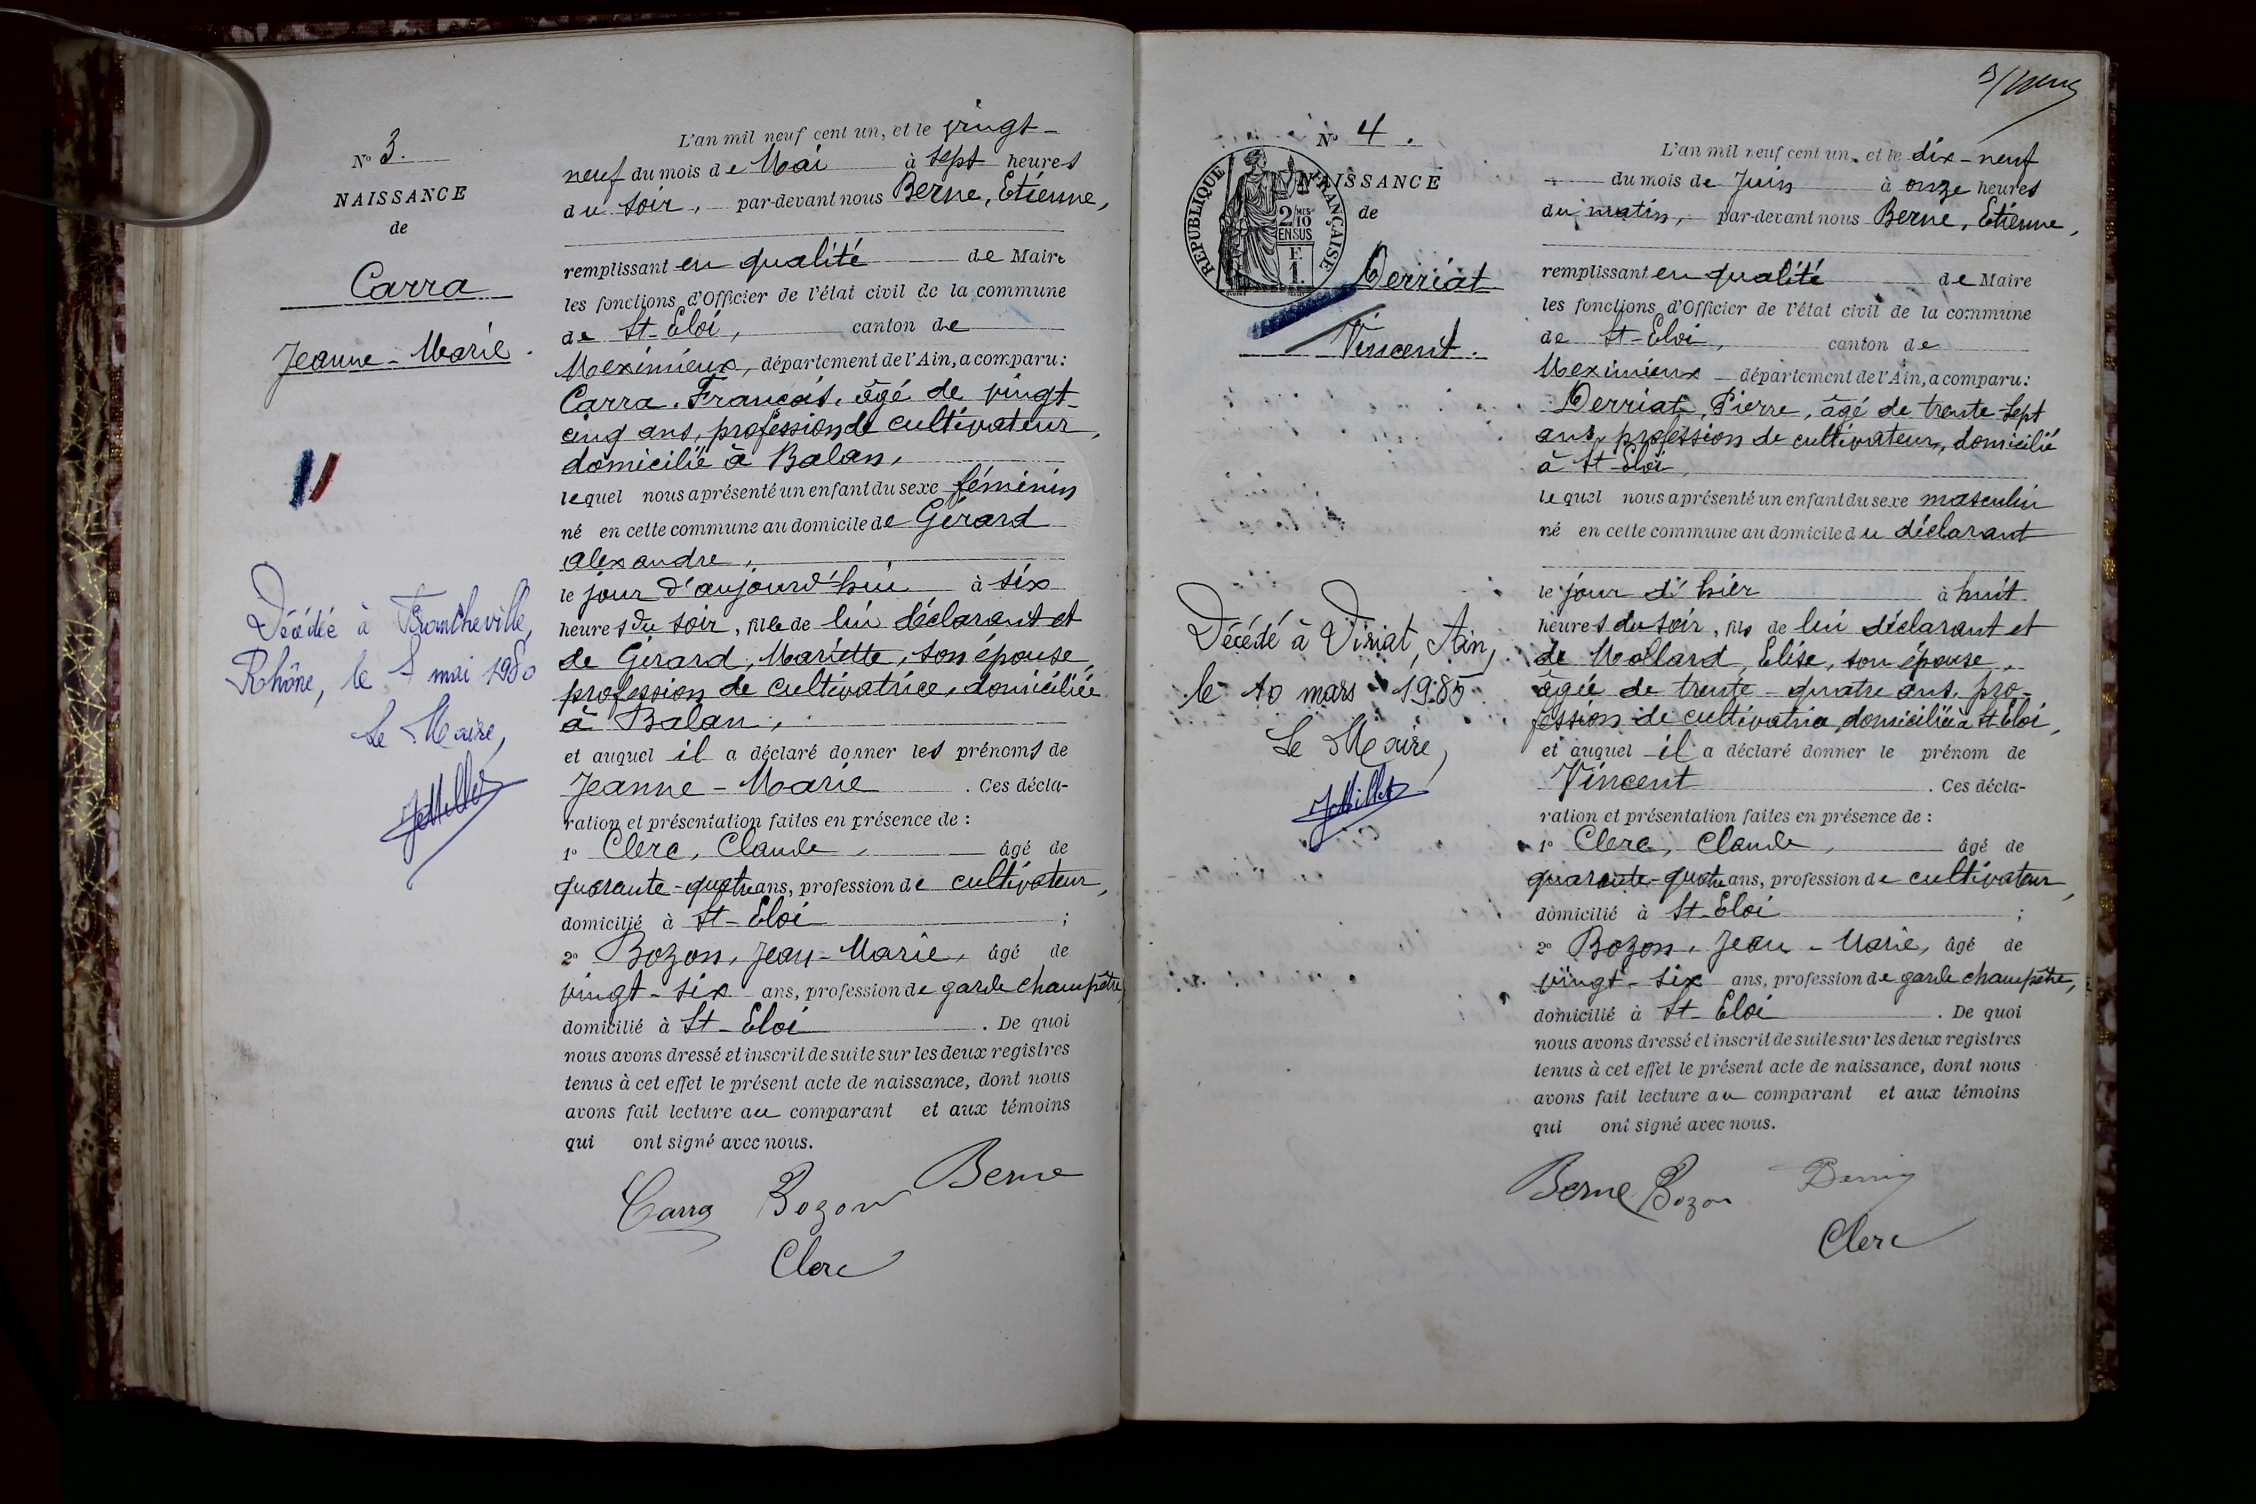 N° 3.
NAISSANCE
de
Carra
Jeanne-Marie.
Décédée à Francheville,
Rhône, le mai 1980
Le Maire,
L'an mil neuf cent un, et le vingt-
neuf du mois de Mai à sept heures
du soir, par-devant nous Berne, Etienne,
remplissant en qualité de Maire
les fonctions d'Officier de l'état civil de la commune
de St-Eloi, canton de
Meximieux, département de l'Ain, a comparu:
Carra, François, âgé de vingt-
cinq ans, profession de cultivateur,
domicilié à Balan,
lequel nous a présenté un enfant du sexe féminin
né en cette commune au domicile de Gérard
Alexandre,
le jour d'aujourd'hui à six
heures du soir, fille de lui déclarant et
de Gérard, Mariette, son épouse,
profession de cultivatrice, domiciliée
à Balan,
et auquel il a déclaré donner les prénoms de
Jeanne-Marie . Ces décla-
ration et présentation faites en présence de :
1° Clerc, Claude, âgé de
quarante-quatre ans, profession de cultivateur,
domicilié à St-Eloi ;
2° Bozon, Jean-Marie, âgé de
vingt-six ans, profession de garde champêtre,
domicilié à St-Eloi . De quoi
nous avons dressé et inscrit de suite sur les deux registres
tenus à cet effet le présent acte de naissance, dont nous
avons fait lecture au comparant et aux témoins
qui ont signé avec nous.
Carra Bozon Berne
Clerc
N° 4.
NAISSANCE
de
REPUBLIQUE FRANÇAISE
2 MES
10
EN SUS
F
1
Derriat
Vincent.
Décédé à Viriat, Ain,
le 10 mars 1985
Le Maire,
L'an mil neuf cent un, et le dix-neuf
du mois de Juin à onze heures
du matin, par-devant nous Berne, Etienne,
remplissant en qualité de Maire
les fonctions d'Officier de l'état civil de la commune
de St-Eloi, canton de
Meximieux département de l'Ain, a comparu:
Derriat, Pierre, âgé de trente-sept
ans, profession de cultivateur, domicilié
à St-Eloi,
lequel nous a présenté un enfant du sexe masculin
né en cette commune au domicile du déclarant
le jour d'hier à huit
heures du soir, fils de lui déclarant et
de Mollard, Elise, son épouse,
âgée de trente-quatre ans, pro-
fession de cultivatrice, domiciliée à St Eloi,
et auquel il a déclaré donner le prénom de
Vincent . Ces décla-
ration et présentation faites en présence de :
1° Clerc, Claude, âgé de
quarante-quatre ans, profession de cultivateur,
domicilié à St-Eloi ;
2° Bozon, Jean-Marie, âgé de
vingt-six ans, profession de garde champêtre,
domicilié à St-Eloi . De quoi
nous avons dressé et inscrit de suite sur les deux registres
tenus à cet effet le présent acte de naissance, dont nous
avons fait lecture au comparant et aux témoins
qui ont signé avec nous.
Berne Bozon
Clerc